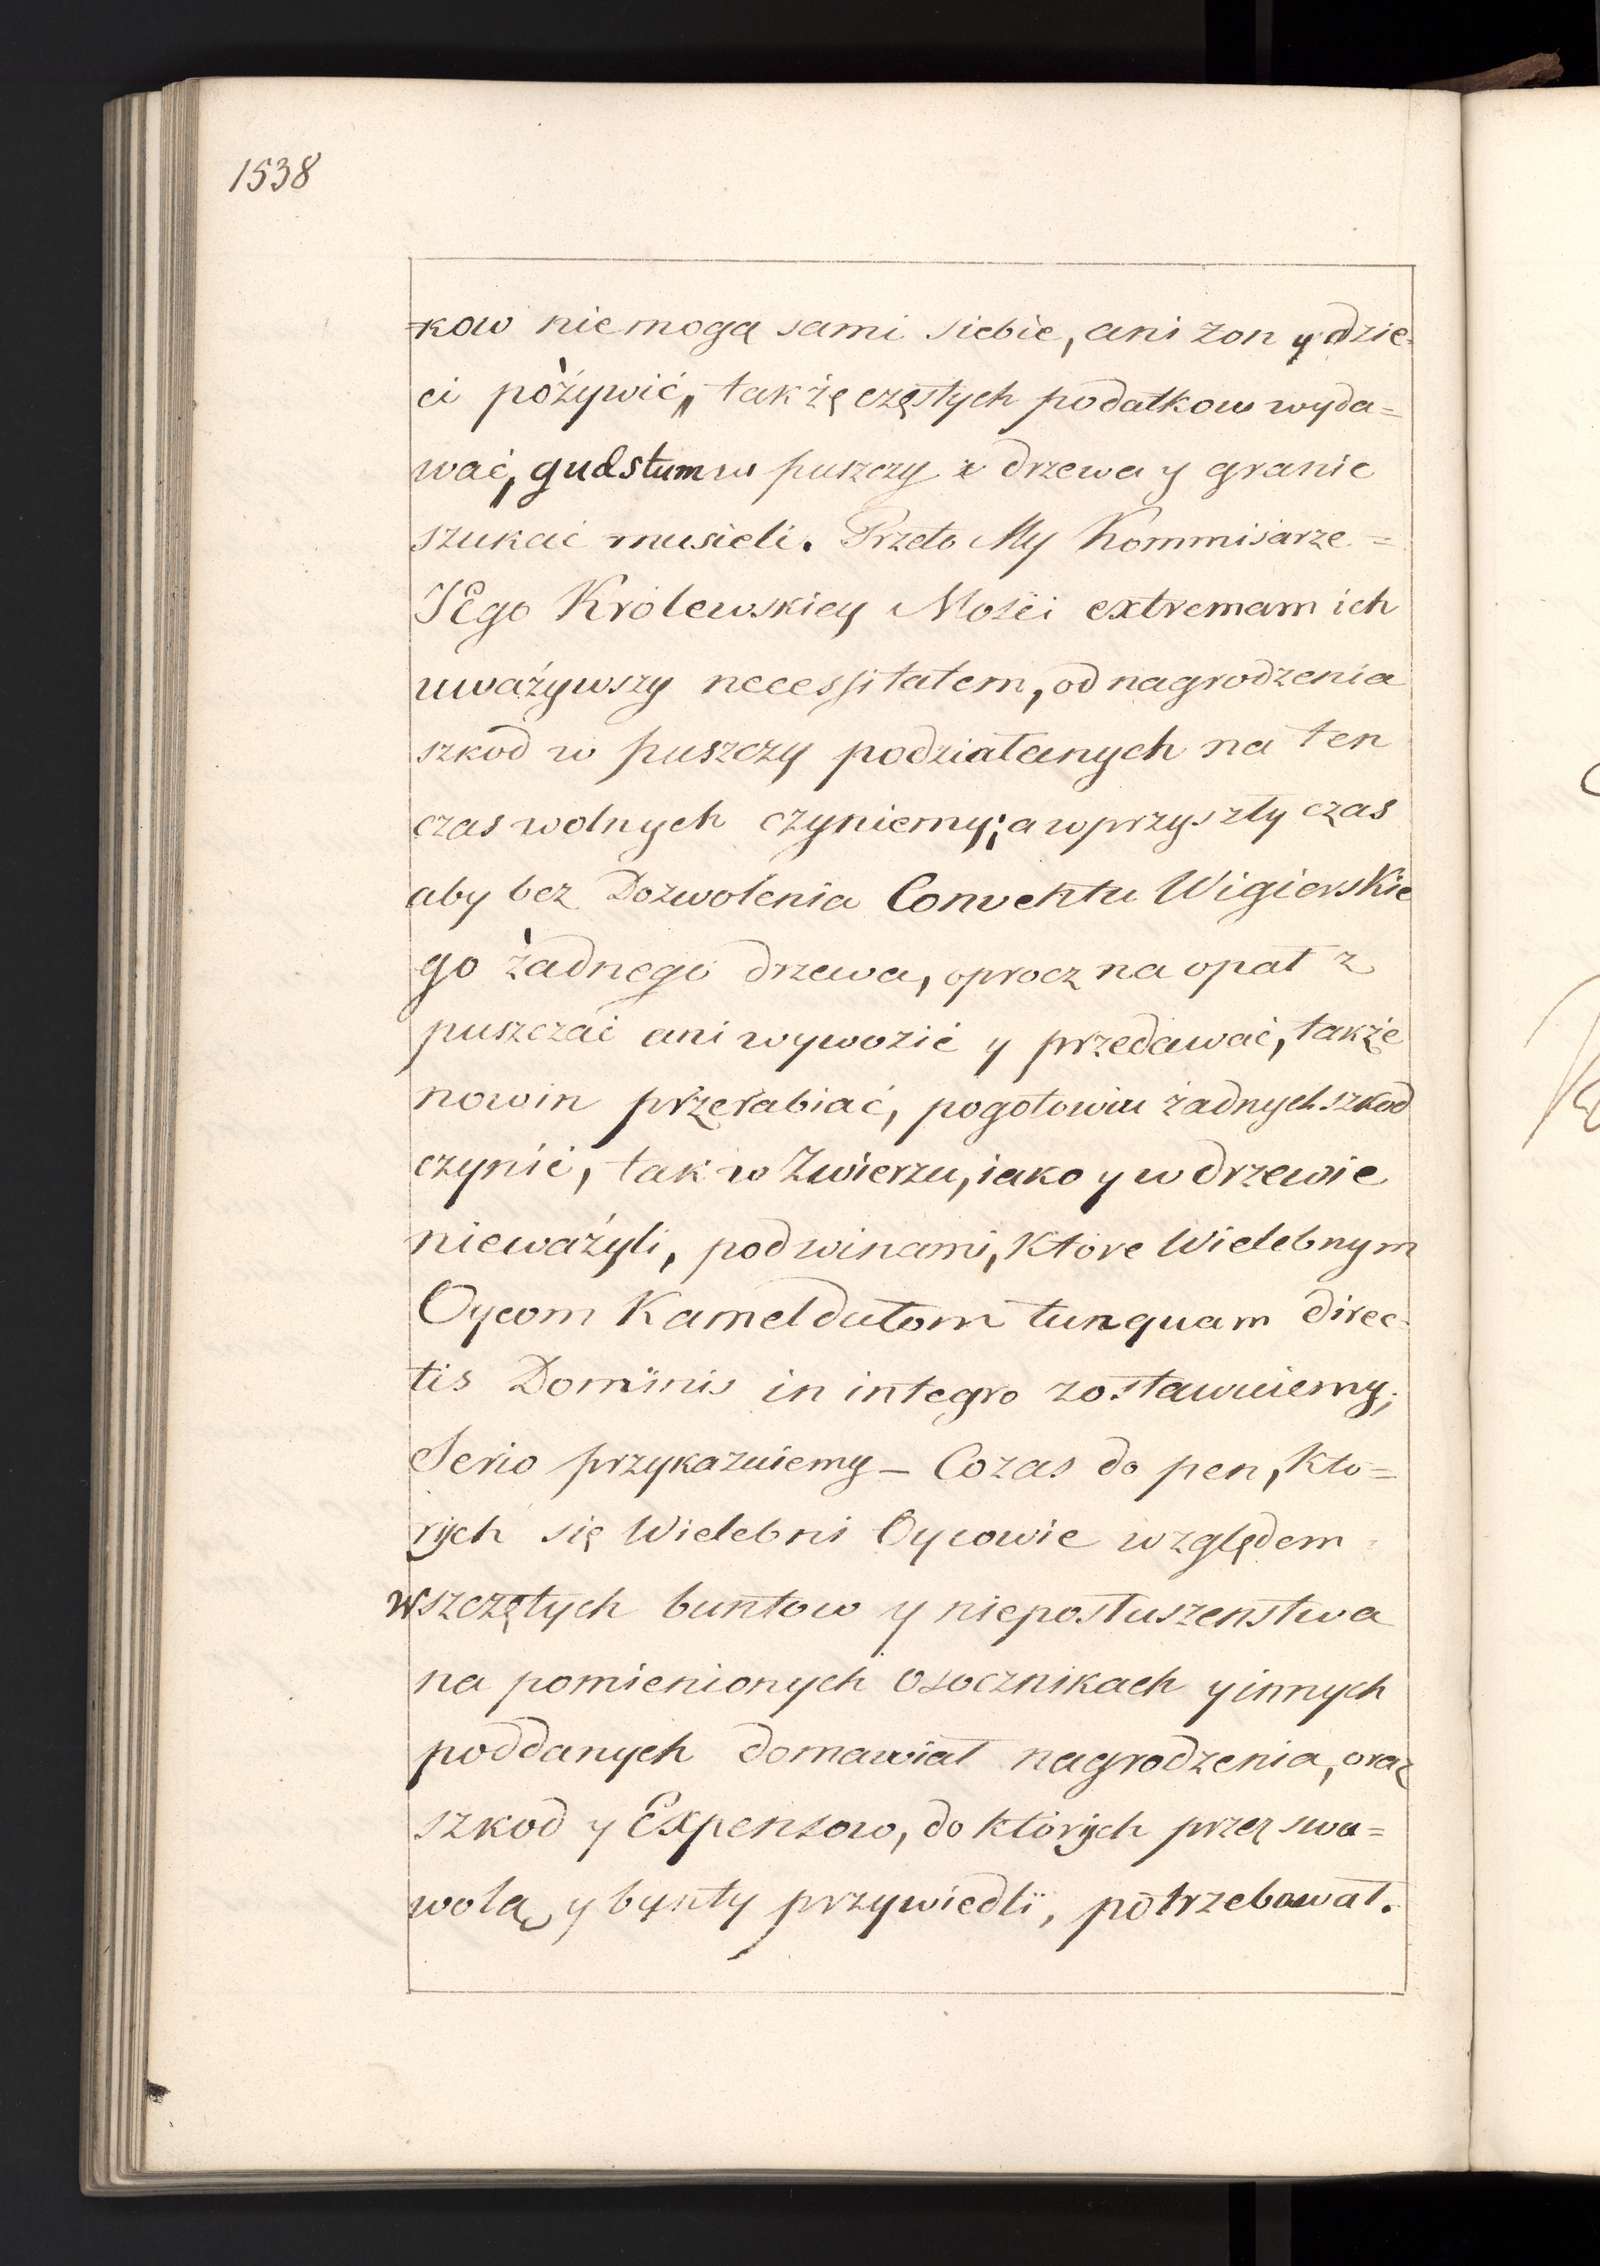 1538
=kow niemogą sami siebie, ani zon y dzie-
ci pożywić, także częstych podatkow wyda=
wać, quæstum w puszczy z drzewa y granic
szukać musieli. Przeto My Kommisarze =
JEgo Krolewskiey Mości extremam ich
uważywszy necessitatem, od nagrodzenia
szkod w puszczy podziałanych na ten
czas wolnych czyniemy; a wprzyszły czas
aby bez Dozwolenia Conventu Wigierskie
go żadnego drzewa, oprocz na opał z
puszczać ani wywozić y przedawać, także
nowin przerabiać, pogotowiu żadnych szkod
czynić, tak w Zwierzu, iako y w drzewie
nieważyli, pod winami, które Wielebnym
Oycom Kameldułom tanquam direc-
tis Dominis in integro zostawuiemy;
Serio przykazuiemy - Cozas do pen, kto=
rych się Wielebni Oycowie względem
wszczętych buntow y nieposłuszenstwa
na pomienionych osocznikach y innych
poddanych domawiał nagrodzenia, oraz
szkod y Expensow, do których przez swa=
wolą y bunty przywiedli, potrzebował.